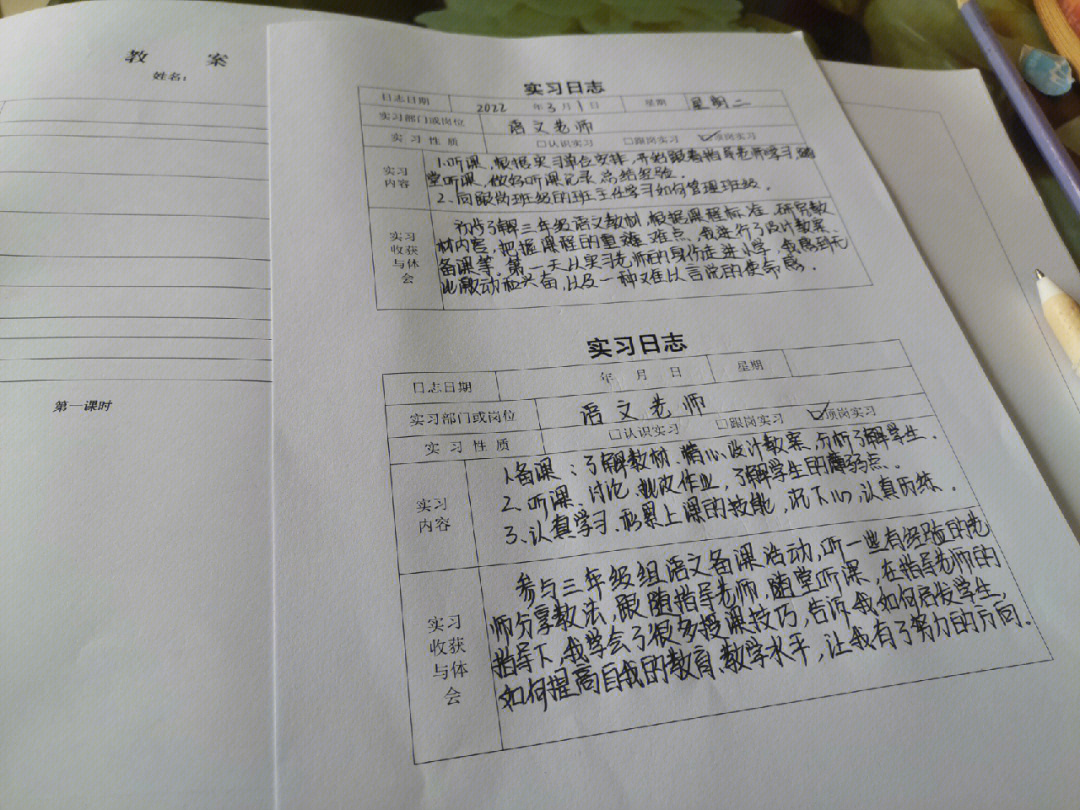 教 案
姓名：
第一课时
实习日志
日志日期 2022 年 3 月 1 日 星期 星期二
实习部门或岗位 语文老师
实习性质 □认识实习 □跟岗实习 ☑顶岗实习
实习
内容
1.听课，根据实习单位安排，开始跟着指导老师学习，随
堂听课，做好听课记录，总结经验。
2、向跟岗班级的班主任学习如何管理班级。
实习
收获
与体
会
初步了解三年级语文教材，根据课程标准，研究教
材内容，把握课程的重难点，我进行了设计教案、
备课等。第一天从实习老师的身份走进小学，我感到无
比激动和兴奋，以及一种难以言说的使命感。
实习日志
日志日期 年 月 日 星期
实习部门或岗位 语文老师
实习性质 □认识实习 □跟岗实习 ☑顶岗实习
实习
内容
1、备课：了解教材、精心设计教案，分析了解学生．
2、听课、讨论、批改作业，了解学生的薄弱点．
3、认真学习、积累上课的技能，沉下心，认真历练．
实习
收获
与体
会
参与三年级组语文备课活动，听一些有经验的老
师分享教法，跟随指导老师，随堂听课，在指导老师的
指导下，我学会了很多授课技巧，告诉我如何启发学生，
如何提高自我的教育、教学水平，让我有了努力的方向．